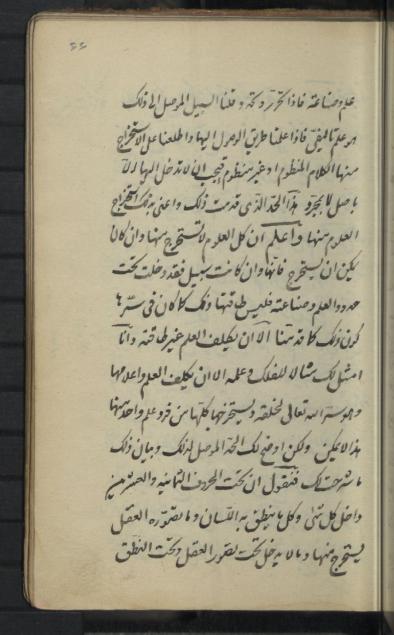 ٤٤
علم وصناعته فاذا تحرر وتحد وقلنا السبيل الموصل الى ذلك
هو علم فاذا علمنا طريق الوصول اليها واطلعنا على الاستخراج
منها الكلام المنظوم او غير منظوم فيجب ان لا تدخل اليها الا
باصل لا هذا الحد الذى قدمت ذلك واعنى بذلك استخراج
العلوم منها واعلم ان كل العلوم لا تستخرج منها وان كان
يمكن ان يستخرج فانها وان كانت سبيل فقد دخلت تحت
حدود العلم وصناعته فليس طاقتها ذلك كما كان فى سرها
كون ذلك كما قدمنا الا ان يكلف العلم غير طاقته وانا
امثل لك مثالا للفلك وعلمه الا ان يكلف العلم واعلامها
وهو سر الله تعالى لخلقه ويستخرجها كلها من فرد علم واحد منها
هذا لا يمكن ولكن اوضح لك الحد الموصل لذلك وبيان ذلك
ما شرحت لك فنقول ان تحت الحروف الثمانية والعشرين
داخل كل شئ وكل ما ينطق به اللسان وما يتصوره العقل
يستخرج منها وما لا يدخل تحت تصور العقل وتحت النطق